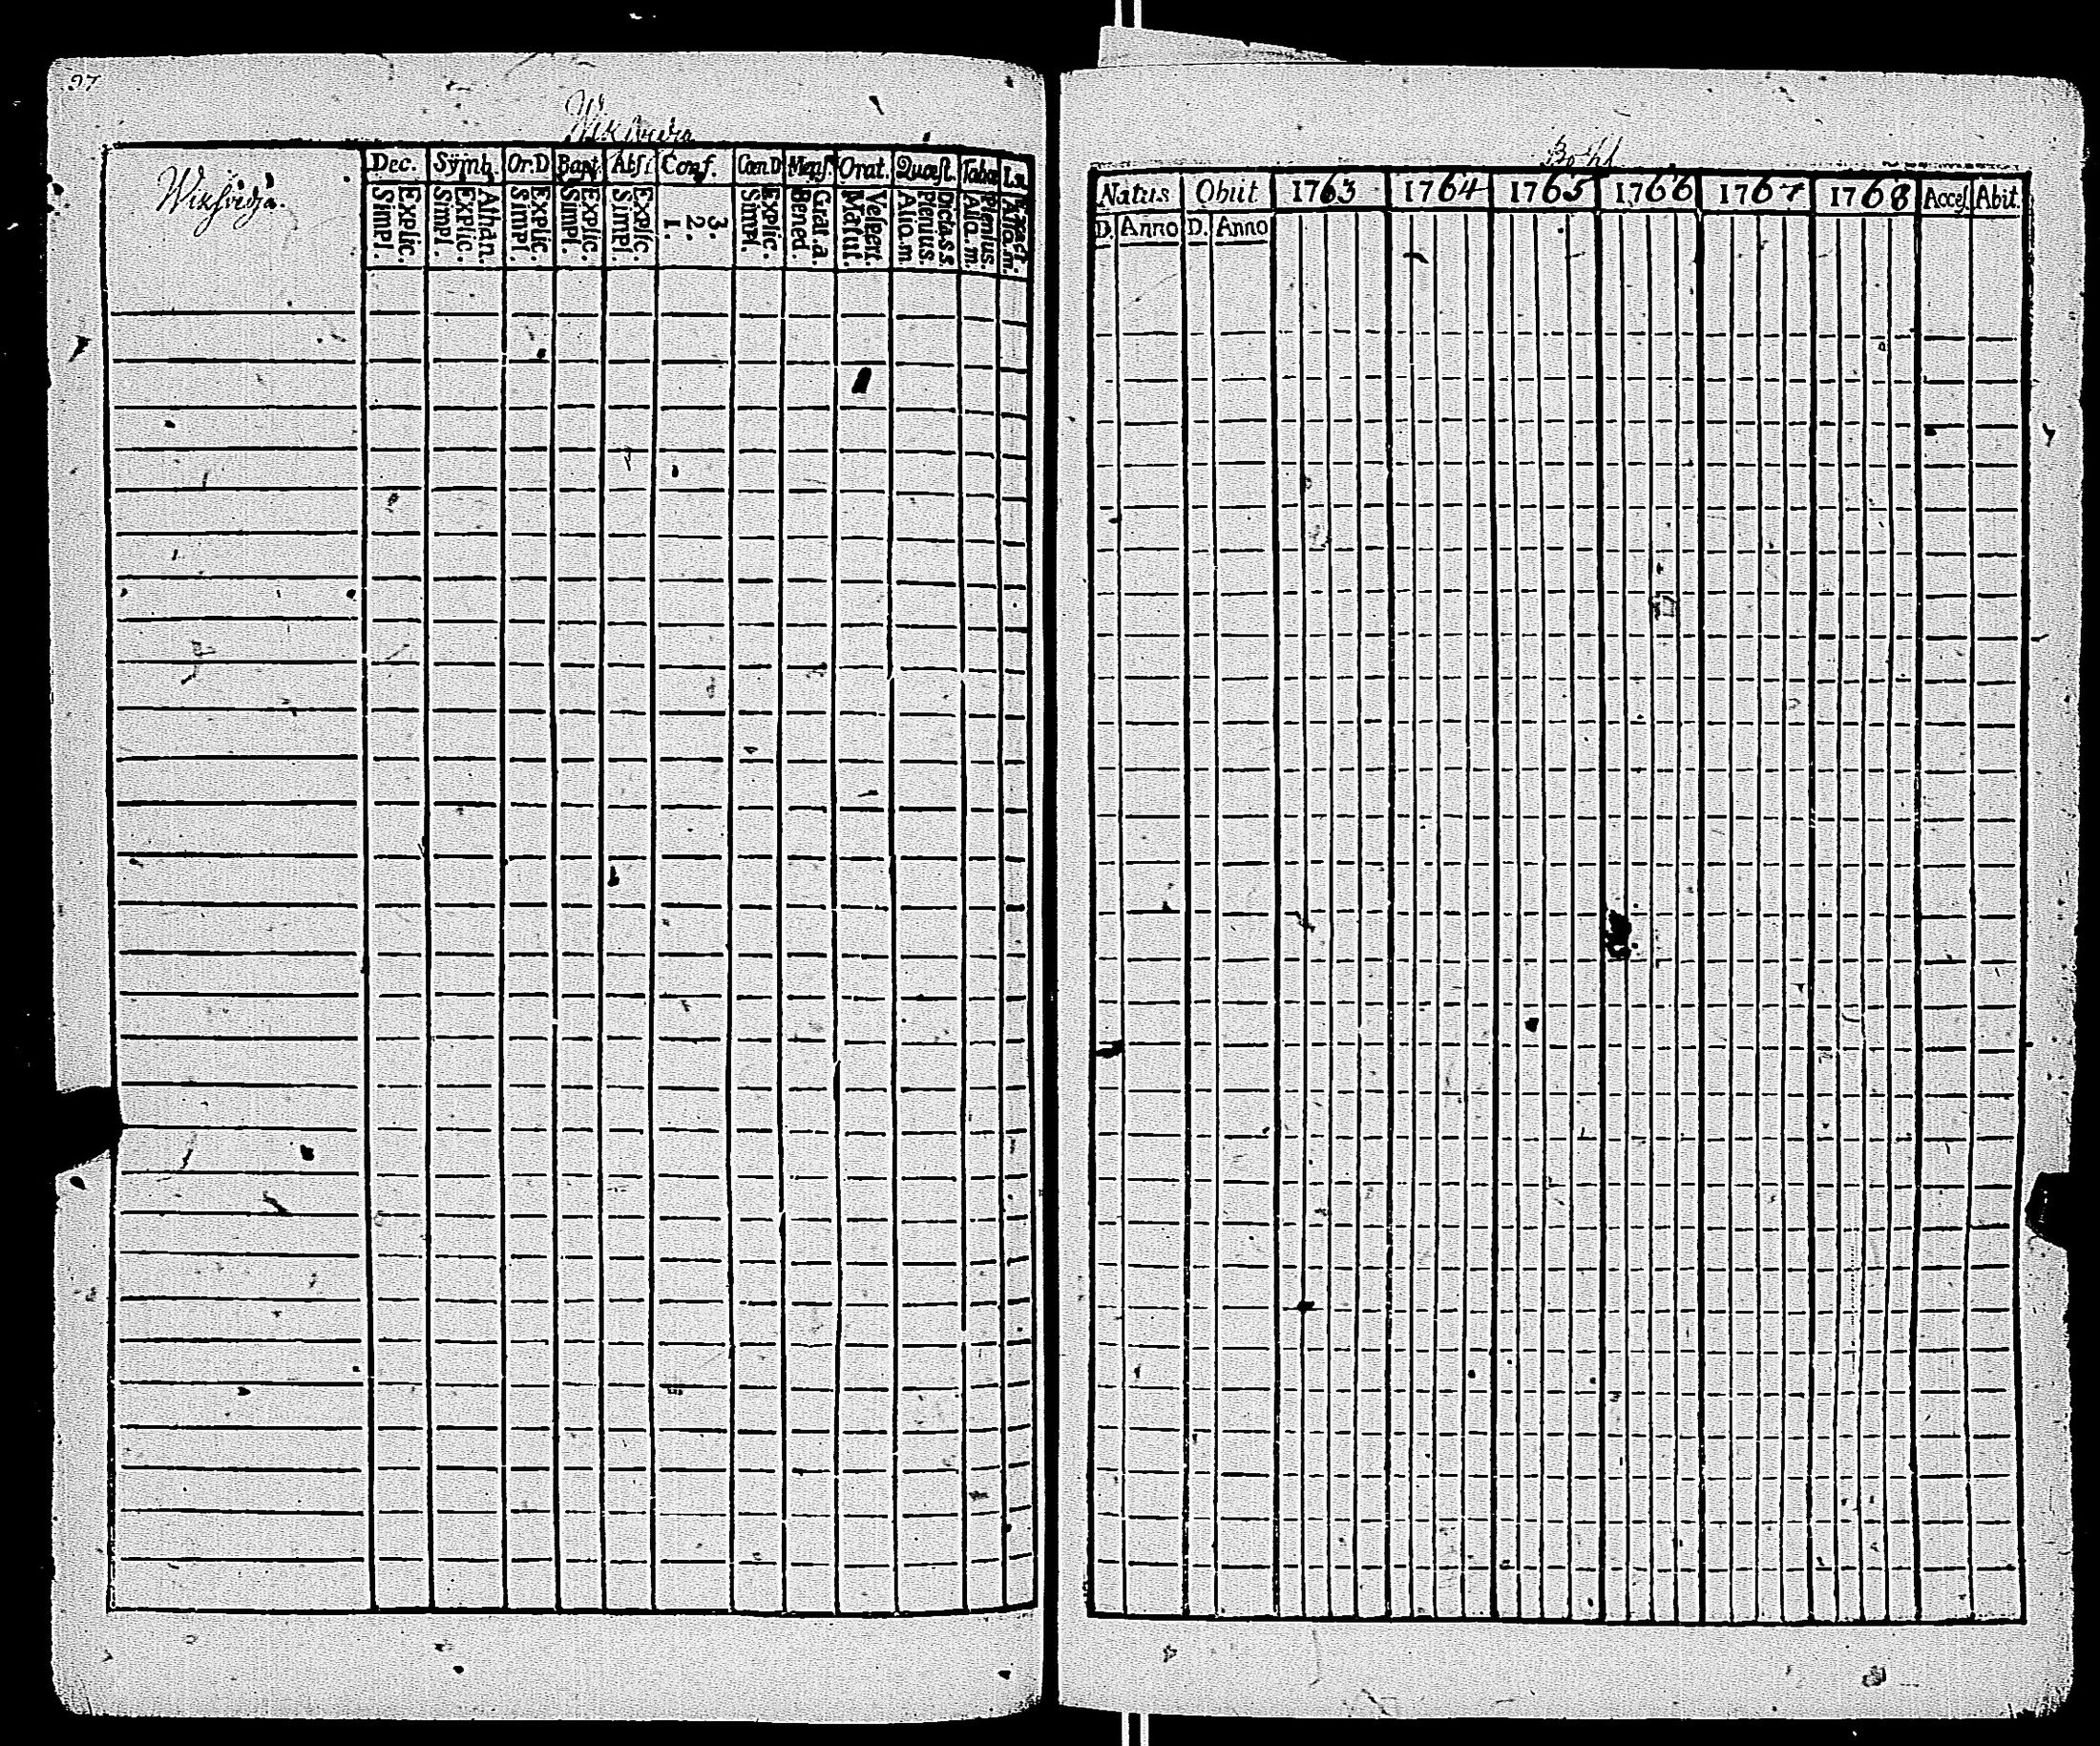 97
Wiksvidja
Wiksvidja.
Dec. Symb. Or.D Bapt. Abs. Conf. Cœn.D Mens. Orat. Quæst. Taba
Explic. Simpl.
Athan. Explic. Simpl.
Explic. Simpl.
Explic. Simpl.
Explic. Simpl.
3. 2. 1.
Explic. Simpl.
Grat. a. Bened.
Vespert. Matut.
Dict. s s. Plenius. Aliq. m
Plenius. Aliq. m.
Aliq. m.
Natus Obiit 1763 1764 1765 1766 1767 1768 Acces. Abit.
D. Anno D. Anno